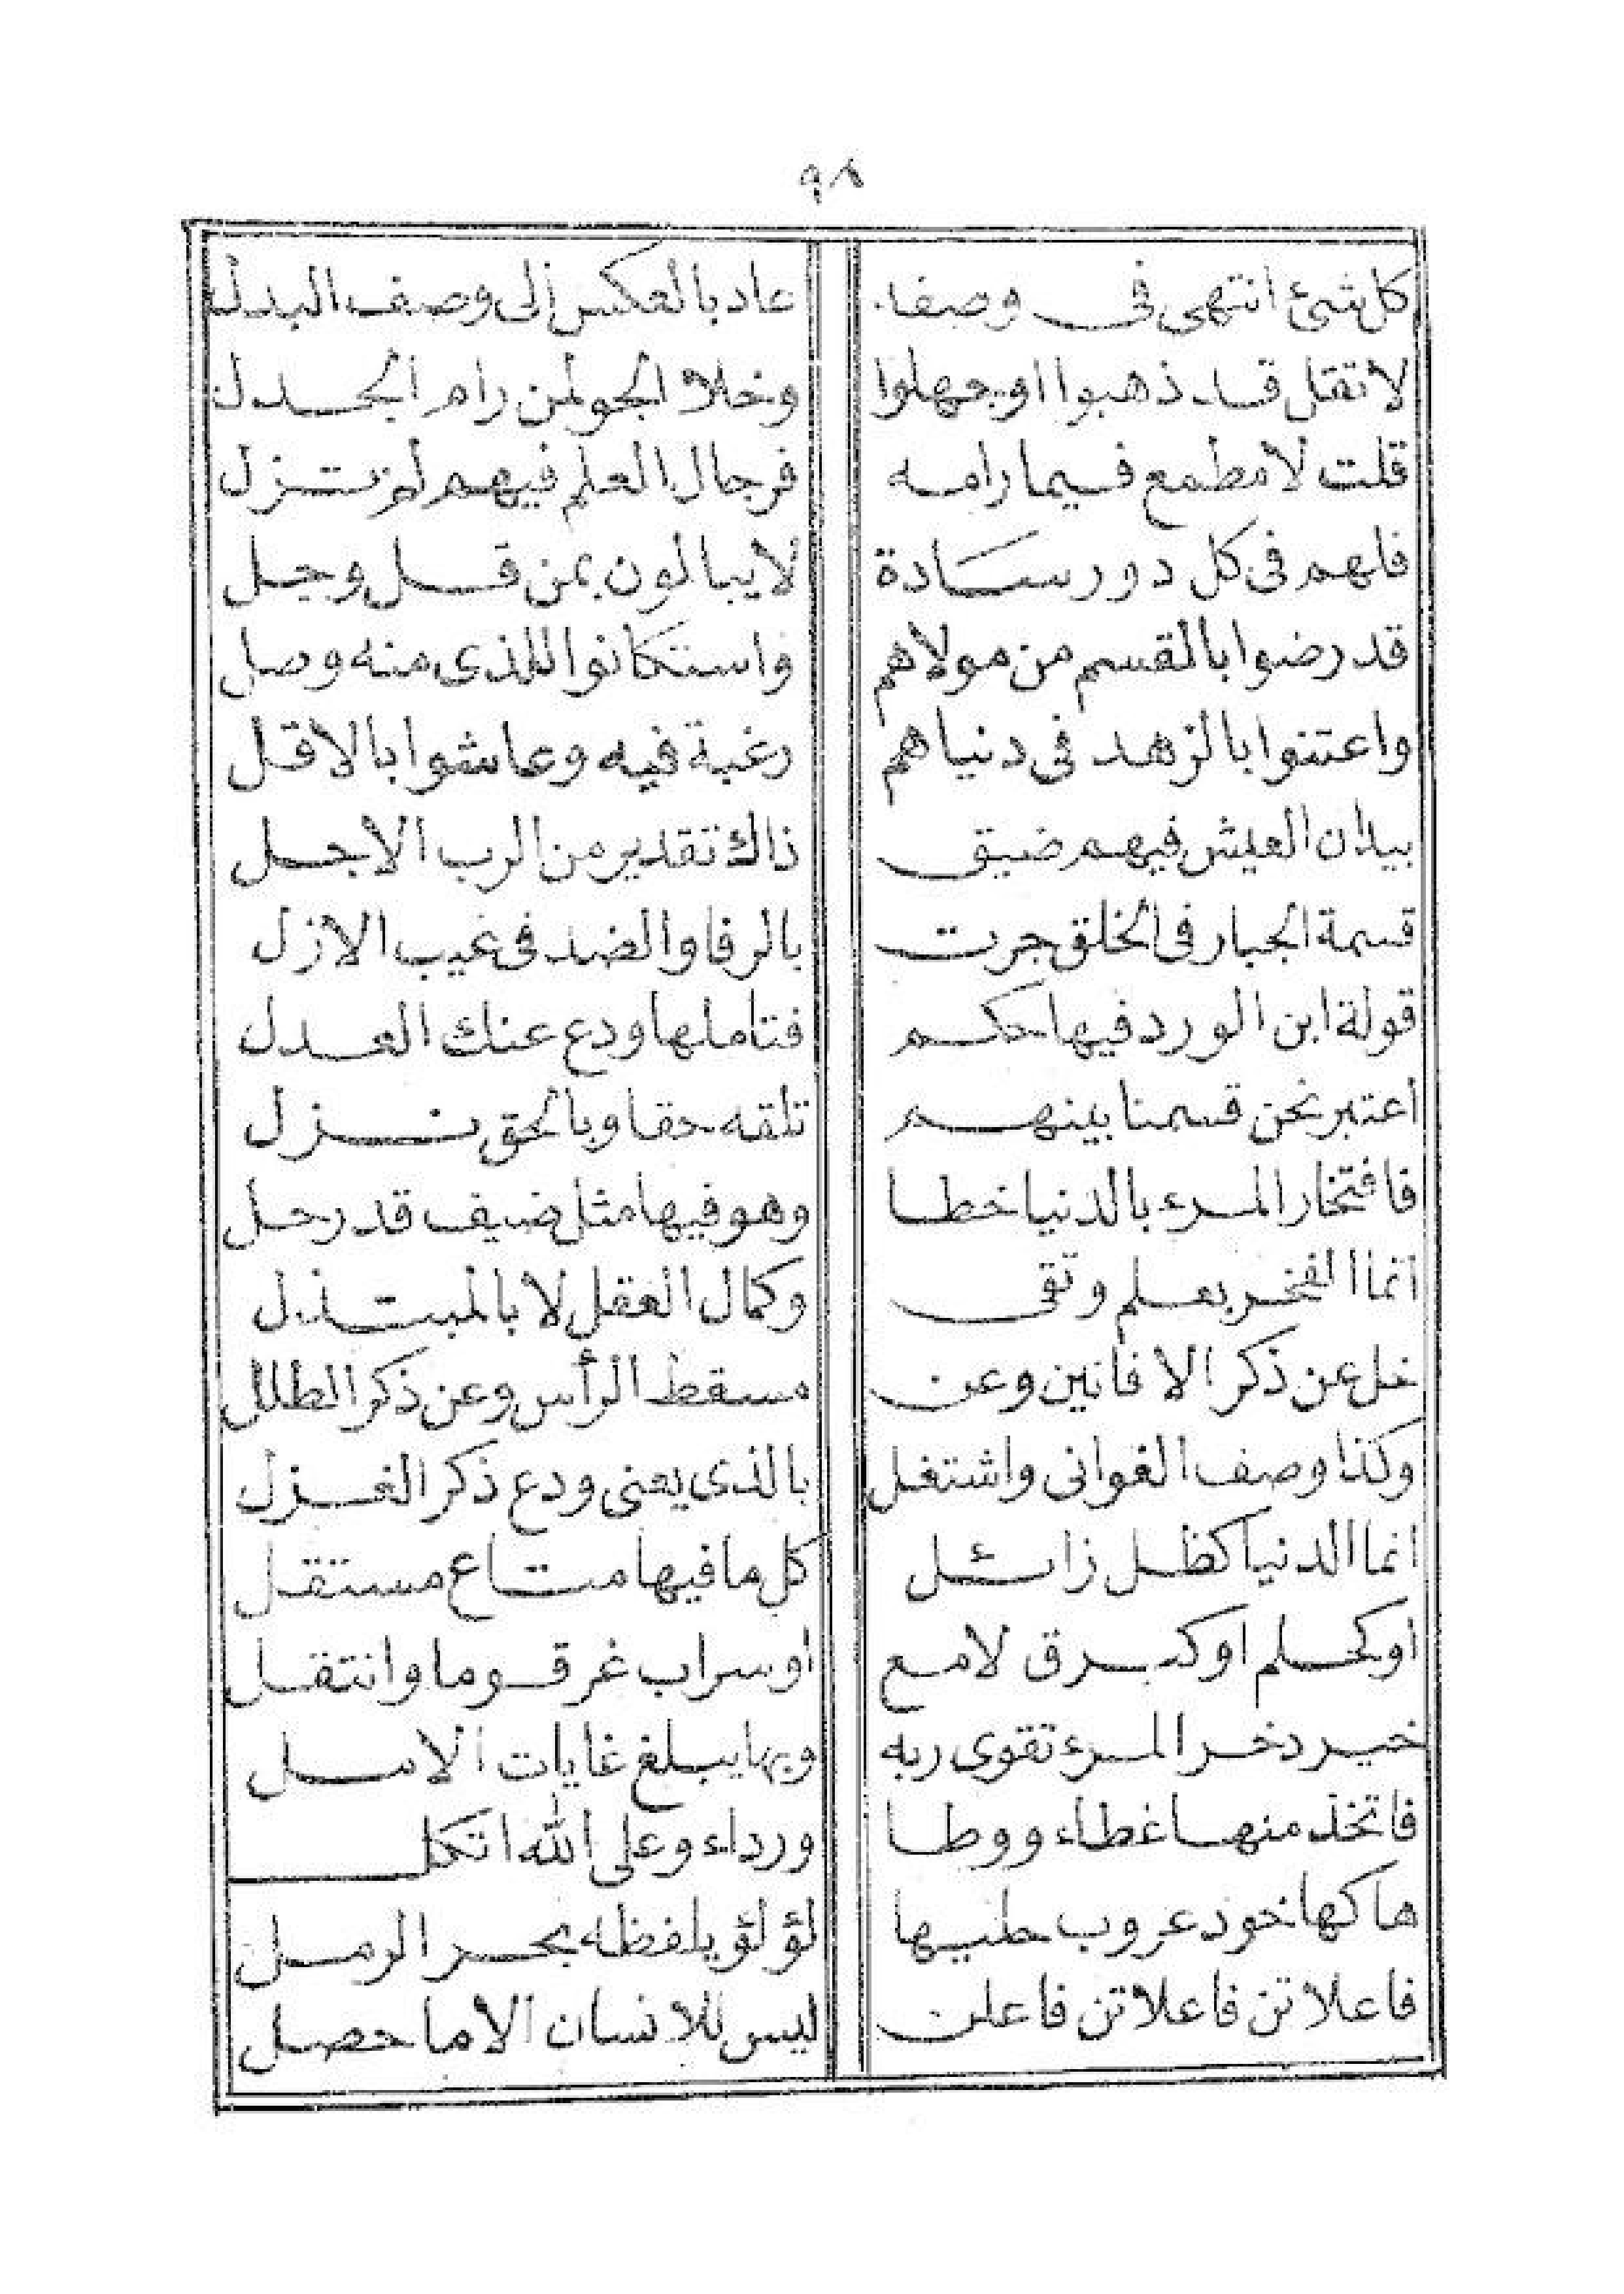 ٩٨
كل شئ انتهى فى وصفا عاد بالعكس إلى وصف البدل
لا تقل قد ذهبوا اوجهلوا وخلا الجو لمن رام الجدل
قلت لا مطمع فيما رامه فرجال العلم فيهم لم تزل
فلهم فى كل دور سادة لا يبالون بمن قل وجل
قد رضوا بالقسم من مولاهم واستكانوا للذى منه وصل
واعتنوا بالزهد فى دنياهم رغبة فيه وعاشوا بالاقل
بيدان العيش فيهم ضيق ذاك تقدير من الرب الاجل
قسمة الجبار فى الخلق جرت بالرفا والضد فى غيب الازل
قولة ابن الورد فيها حكم فتاملها ودع عنك العدل
اعتبر نحن قسمنا بينهم تلقه حقا وبالحق نزل
فافتخار المرء بالدنيا خطا وهو فيها مثل ضيف قد رحل
انما الفخر بعلم وتقى وكمال العقل لا بالمبتذل
خل عن ذكر الافانين وعن مسقط الرأس وعن ذكر الطلل
وكذا وصف الغوانى واشتغل بالذى يعنى ودع ذكر الغزل
انما الدنيا كظل زائل كل ما فيها متاع مستقل
اوكحلم اوكبرق لامع اوسراب غر قوما وانتقل
خير دخر المرء تقوى ربه وبها يبلغ غايات الامل
فاتخذ منها غطاء ووطا ورداء وعلى الله اتكل
هاكها خود عروب حليها لؤلؤ يلفظه بحر الرمل
فاعلاتن فاعلاتن فاعلن ليس للانسان الا ما حصل